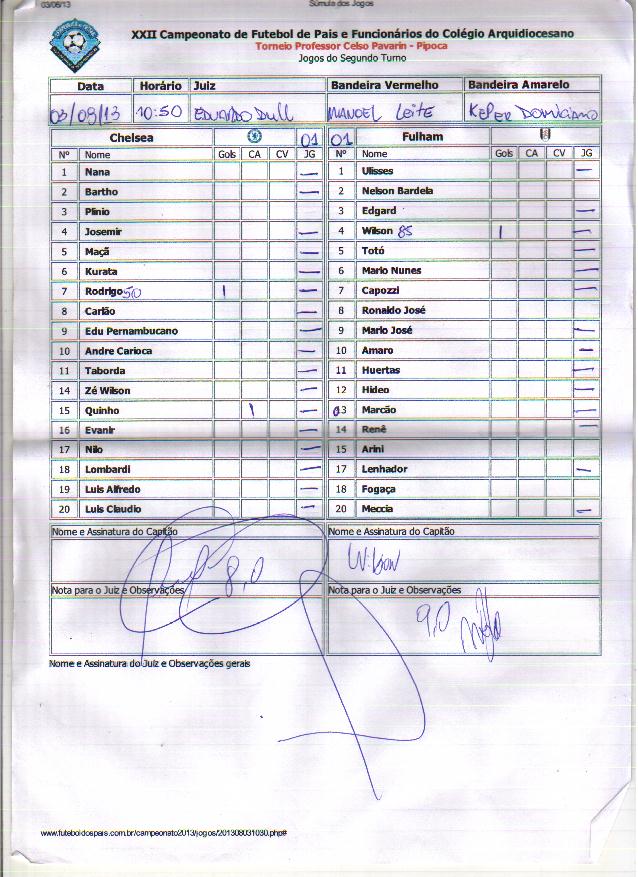 03/08/13 Súmula dos Jogos
XXII Campeonato de Futebol de Pais e Funcionários do Colégio Arquidiocesano
Torneio Professor Celso Pavarin - Pipoca
Jogos do Segundo Turno
Data Horário Juiz Bandeira Vermelho Bandeira Amarelo
03/08/13 10:50 EDUARDO DULL MANOEL LEITE KEPER DOMICIANO
Chelsea 01 01 Fulham
Nº Nome Gols CA CV JG Nº Nome Gols CA CV JG
1 Nana — 1 Ulisses —
2 Bartho — 2 Nelson Bardela
3 Plinio 3 Edgard —
4 Josemir — 4 Wilson 85 | —
5 Maçã — 5 Totó —
6 Kurata — 6 Mario Nunes —
7 Rodrigo 50 | — 7 Capozzi —
8 Carlão — 8 Ronaldo José
9 Edu Pernambucano — 9 Mario José —
10 Andre Carioca — 10 Amaro —
11 Taborda — 11 Huertas —
14 Zé Wilson — 12 Hideo —
15 Quinho | — 13 Marcão —
16 Evanir — 14 Renê —
17 Nilo — 15 Arini
18 Lombardi — 17 Lenhador —
19 Luis Alfredo — 18 Fogaça
20 Luis Claudio — 20 Meccia —
Nome e Assinatura do Capitão Nome e Assinatura do Capitão
8,0 Wilson
Nota para o Juiz e Observações Nota para o Juiz e Observações
9,0
Nome e Assinatura do Juiz e Observações gerais
www.futeboldospais.com.br/campeonato2013/jogos/201308031030.php#